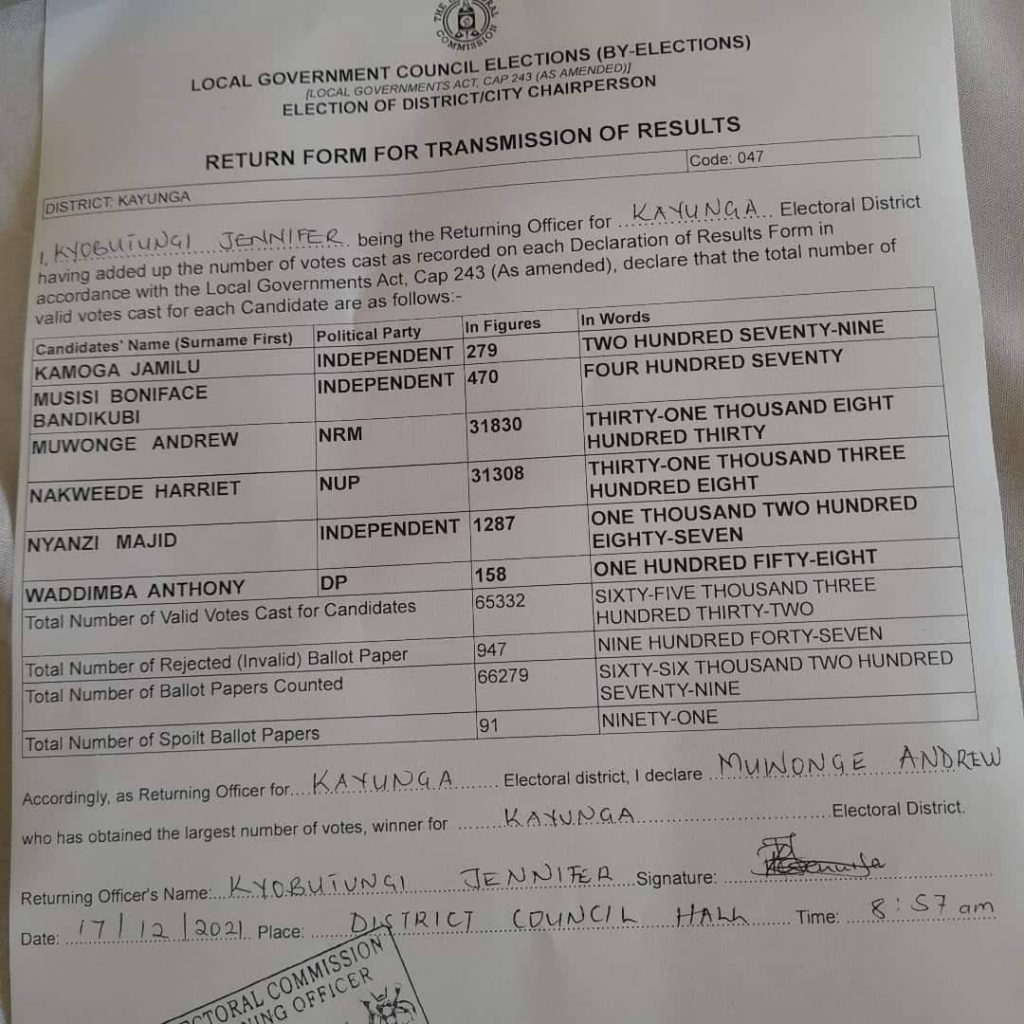 COMMISSION
LOCAL GOVERNMENT COUNCIL ELECTIONS (BY-ELECTIONS)
[LOCAL GOVERNMENTS ACT, CAP 243 (AS AMENDED)]
ELECTION OF DISTRICT/CITY CHAIRPERSON
RETURN FORM FOR TRANSMISSION OF RESULTS
DISTRICT: KAYUNGA Code: 047
I, KYOBUTUNGI JENNIFER being the Returning Officer for KAYUNGA Electoral District
having added up the number of votes cast as recorded on each Declaration of Results Form in
accordance with the Local Governments Act, Cap 243 (As amended), declare that the total number of
valid votes cast for each Candidate are as follows:-
Candidates' Name (Surname First) Political Party In Figures In Words
KAMOGA JAMILU INDEPENDENT 279 TWO HUNDRED SEVENTY-NINE
MUSISI BONIFACE INDEPENDENT 470 FOUR HUNDRED SEVENTY
BANDIKUBI
MUWONGE ANDREW NRM 31830 THIRTY-ONE THOUSAND EIGHT
HUNDRED THIRTY
NAKWEEDE HARRIET NUP 31308 THIRTY-ONE THOUSAND THREE
HUNDRED EIGHT
NYANZI MAJID INDEPENDENT 1287 ONE THOUSAND TWO HUNDRED
EIGHTY-SEVEN
WADDIMBA ANTHONY DP 158 ONE HUNDRED FIFTY-EIGHT
Total Number of Valid Votes Cast for Candidates 65332 SIXTY-FIVE THOUSAND THREE
HUNDRED THIRTY-TWO
Total Number of Rejected (Invalid) Ballot Paper 947 NINE HUNDRED FORTY-SEVEN
Total Number of Ballot Papers Counted 66279 SIXTY-SIX THOUSAND TWO HUNDRED
SEVENTY-NINE
Total Number of Spoilt Ballot Papers 91 NINETY-ONE
Accordingly, as Returning Officer for KAYUNGA Electoral district, I declare MUWONGE ANDREW
who has obtained the largest number of votes, winner for KAYUNGA Electoral District.
Returning Officer's Name: KYOBUTUNGI JENNIFER Signature:
Date: 17/12/2021 Place: DISTRICT COUNCIL HALL Time: 8:57 am
COMMISSION
OFFICER